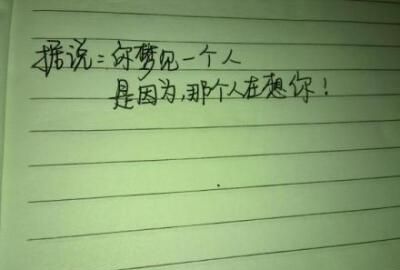 据说：你梦见一个人
是因为，那个人在想你！